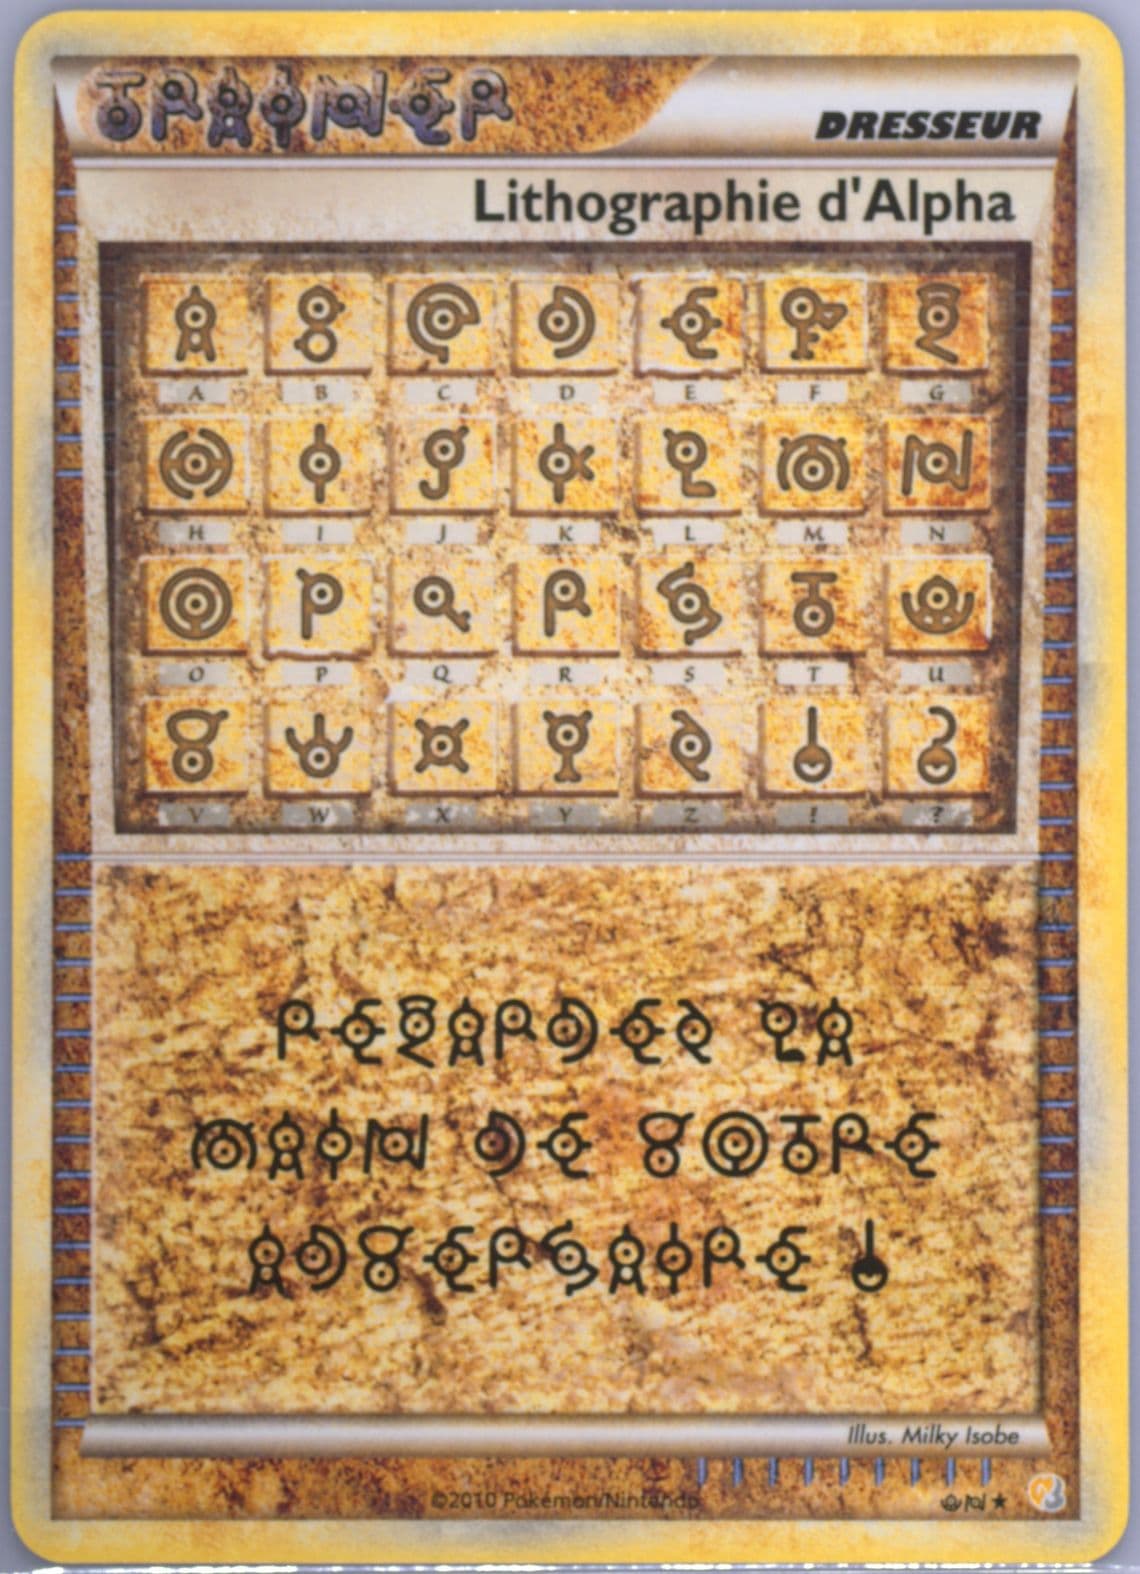 TRAINER
DRESSEUR
Lithographie d'Alpha
A B C D E F G
H I J K L M N
O P Q R S T U
V W X Y Z ! ?
REGARDEZ LA
MAIN DE VOTRE
ADVERSAIRE !
Illus. Milky Isobe
©2010 Pokémon/Nintendo
UN ★